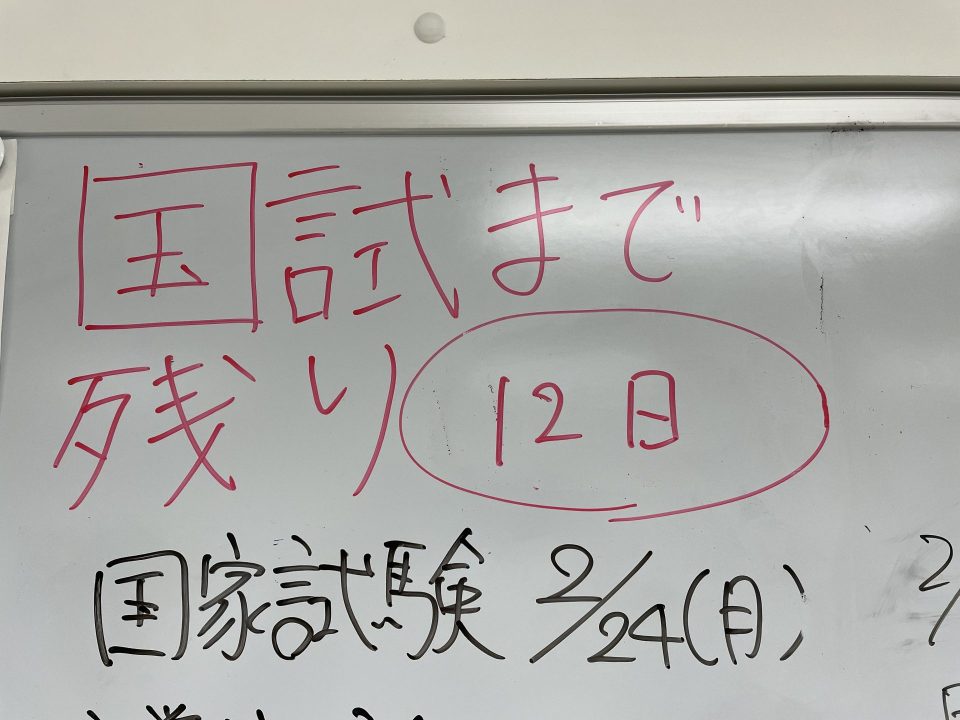 国試まで
残り 12日
国家試験 2/24(月)
2/